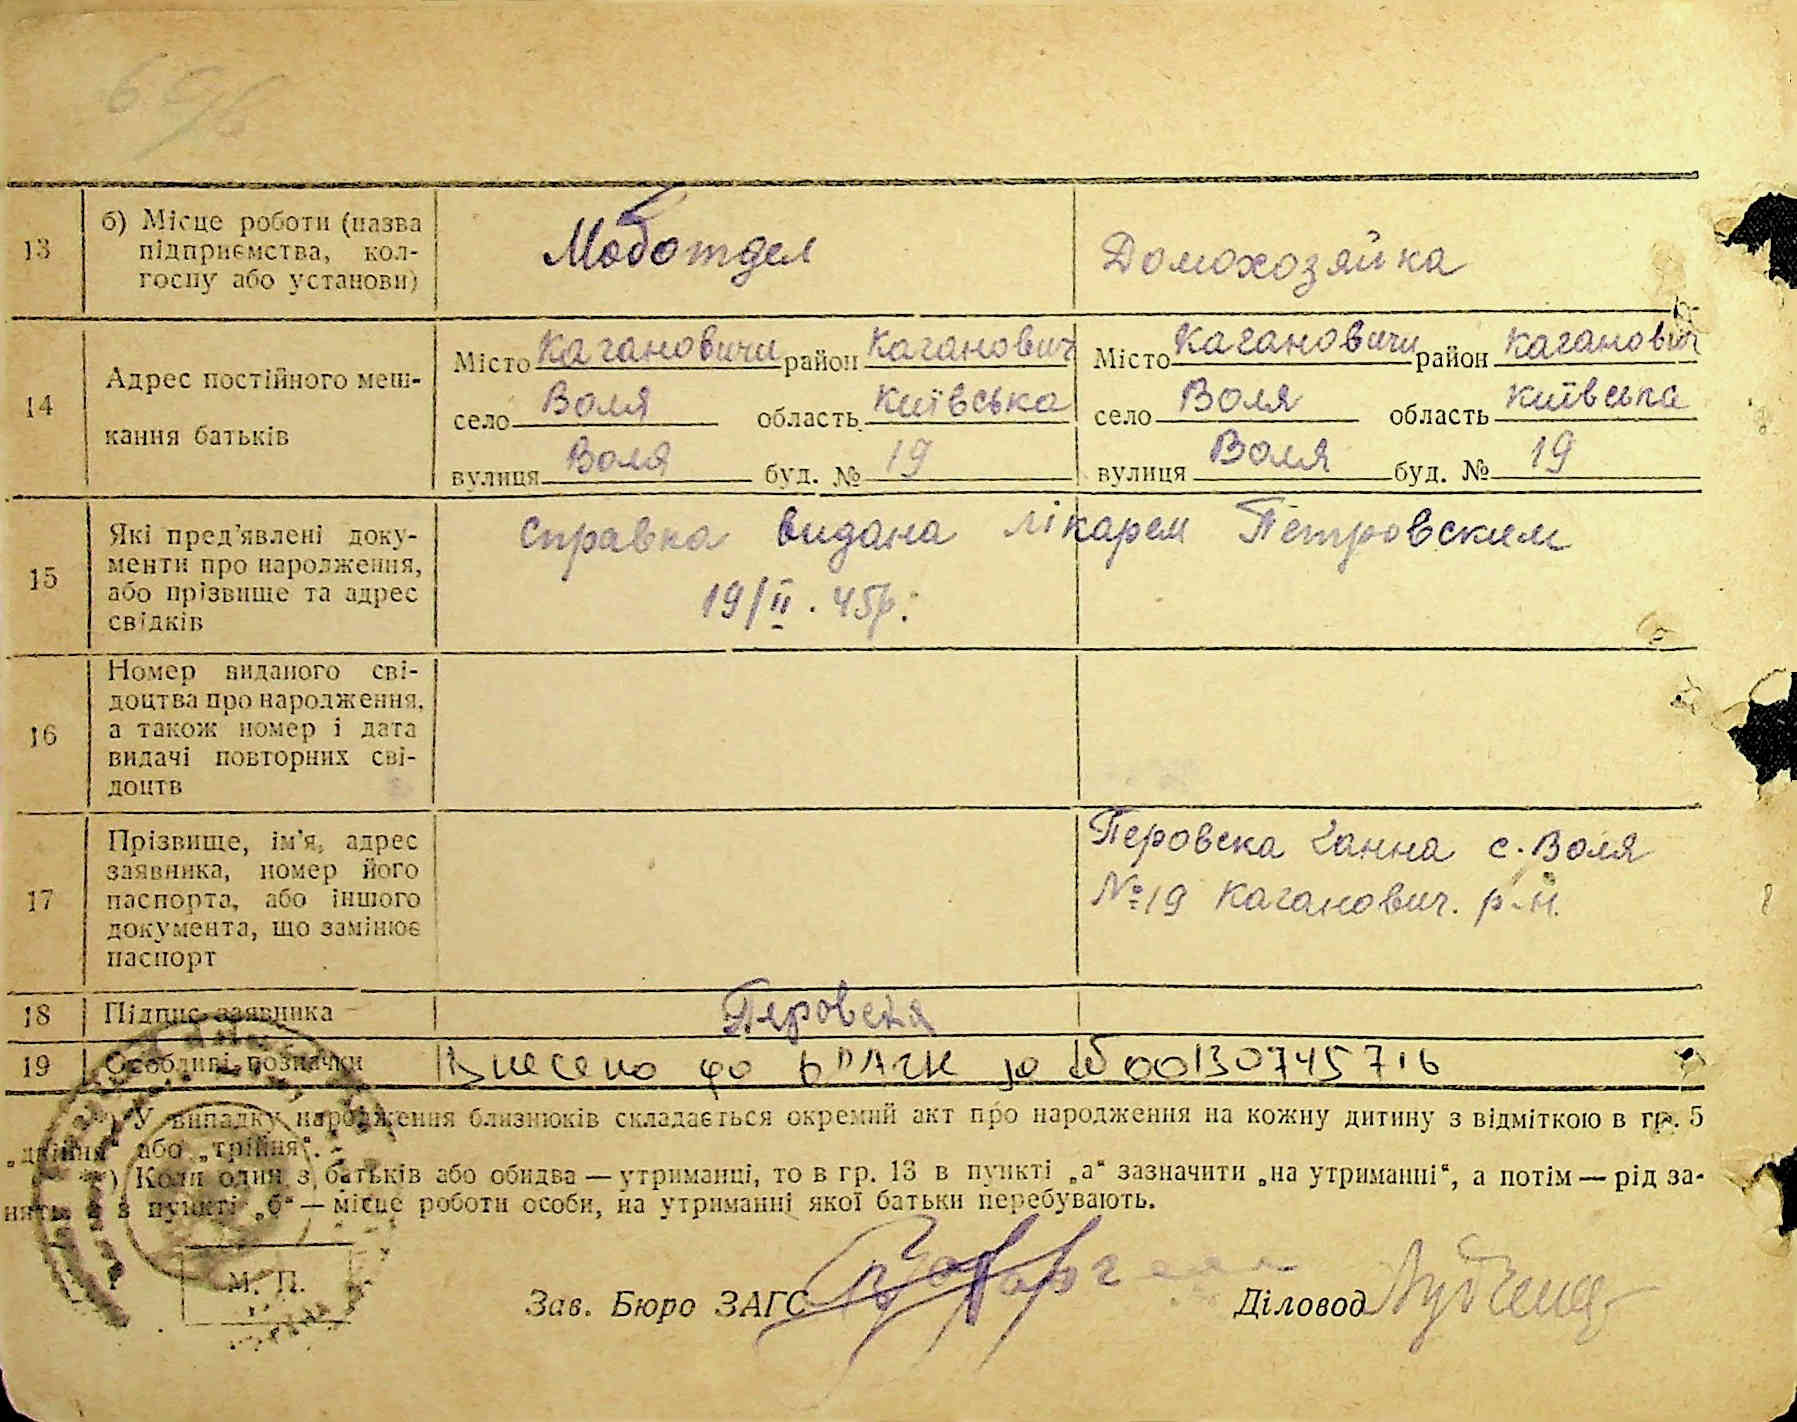 13 б) Місце роботи (назва підприємства, колгоспу або установи) Моботдел Домохозяйка
14 Адрес постійного мешкання батьків
Місто Кагановичи район Каганович Місто Кагановичи район Каганович
село Воля область Київська село Воля область Київська
вулиця Воля буд. № 19 вулиця Воля буд. № 19
15 Які пред'явлені документи про народження, або прізвище та адрес свідків
Справка видана лікарем Петровским
19/II. 45р.
16 Номер виданого свідоцтва про народження, а також номер і дата видачі повторних свідоцтв
17 Прізвище, ім'я, адрес заявника, номер його паспорта, або іншого документа, що замінює паспорт
Перовска Ганна с. Воля
№ 19 Каганович. р-н.
18 Підпис заявника Перовска
19 Особливі позначки Внесено до ДРАЦС за № 00130745716
*) У випадку народження близнюків складається окремий акт про народження на кожну дитину з відміткою в гр. 5
„двійня“ або „трійня“.
**) Коли один з батьків або обидва — утриманці, то в гр. 13 в пункті „а“ зазначити „на утриманні“, а потім — рід за-
няття, а в пункті „б“ — місце роботи особи, на утриманні якої батьки перебувають.
М. П.
Зав. Бюро ЗАГС
Діловод